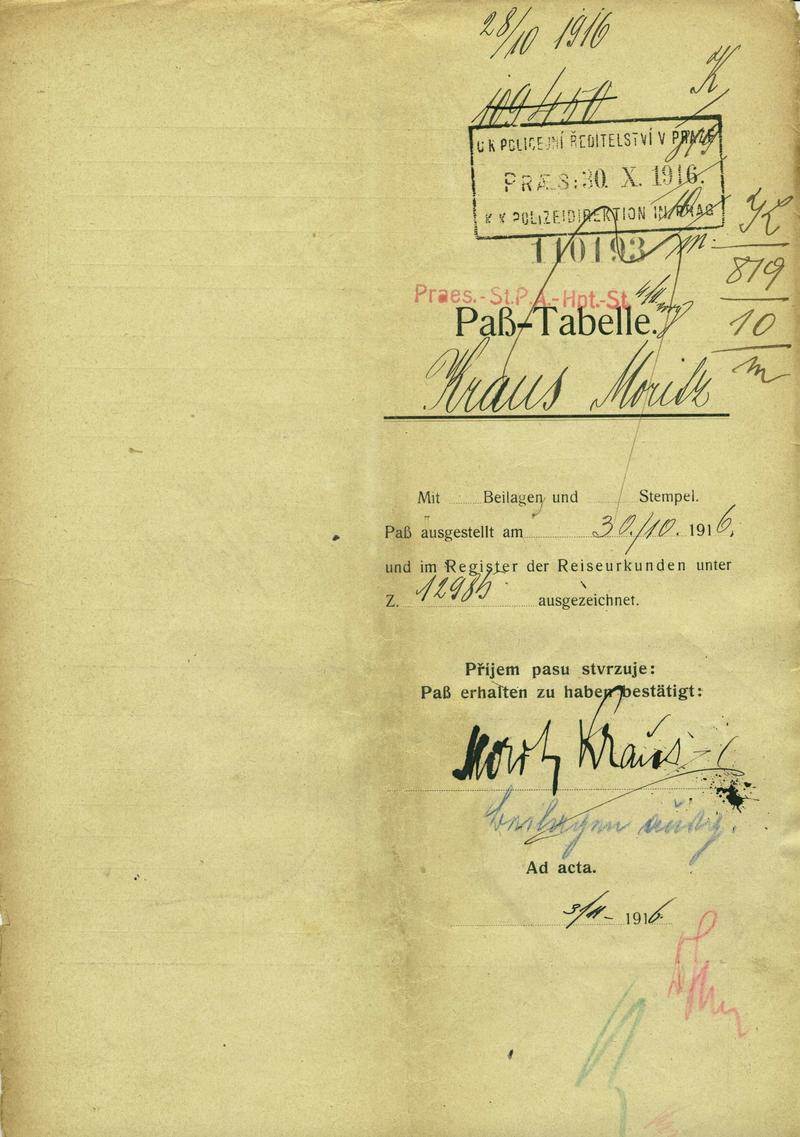 28/10 1916
109450
K
C K POLICEJNÍ ŘEDITELSTVÍ V PRAZE
PRÆS: 30. X. 1916.
K K POLIZEIDIREKTION IN PRAG
110193
K
819
10
m
Praes.-St.P.A.-Hpt.-St.
Paß-Tabelle.
Kraus Moritz
Mit Beilagen und Stempel.
Paß ausgestellt am 30./10. 1916.
und im Register der Reiseurkunden unter
Z. 12985 ausgezeichnet.
Příjem pasu stvrzuje:
Paß erhalten zu haben bestätigt:
Moritz Kraus
Beilagen
Ad acta.
3/11 - 1916.